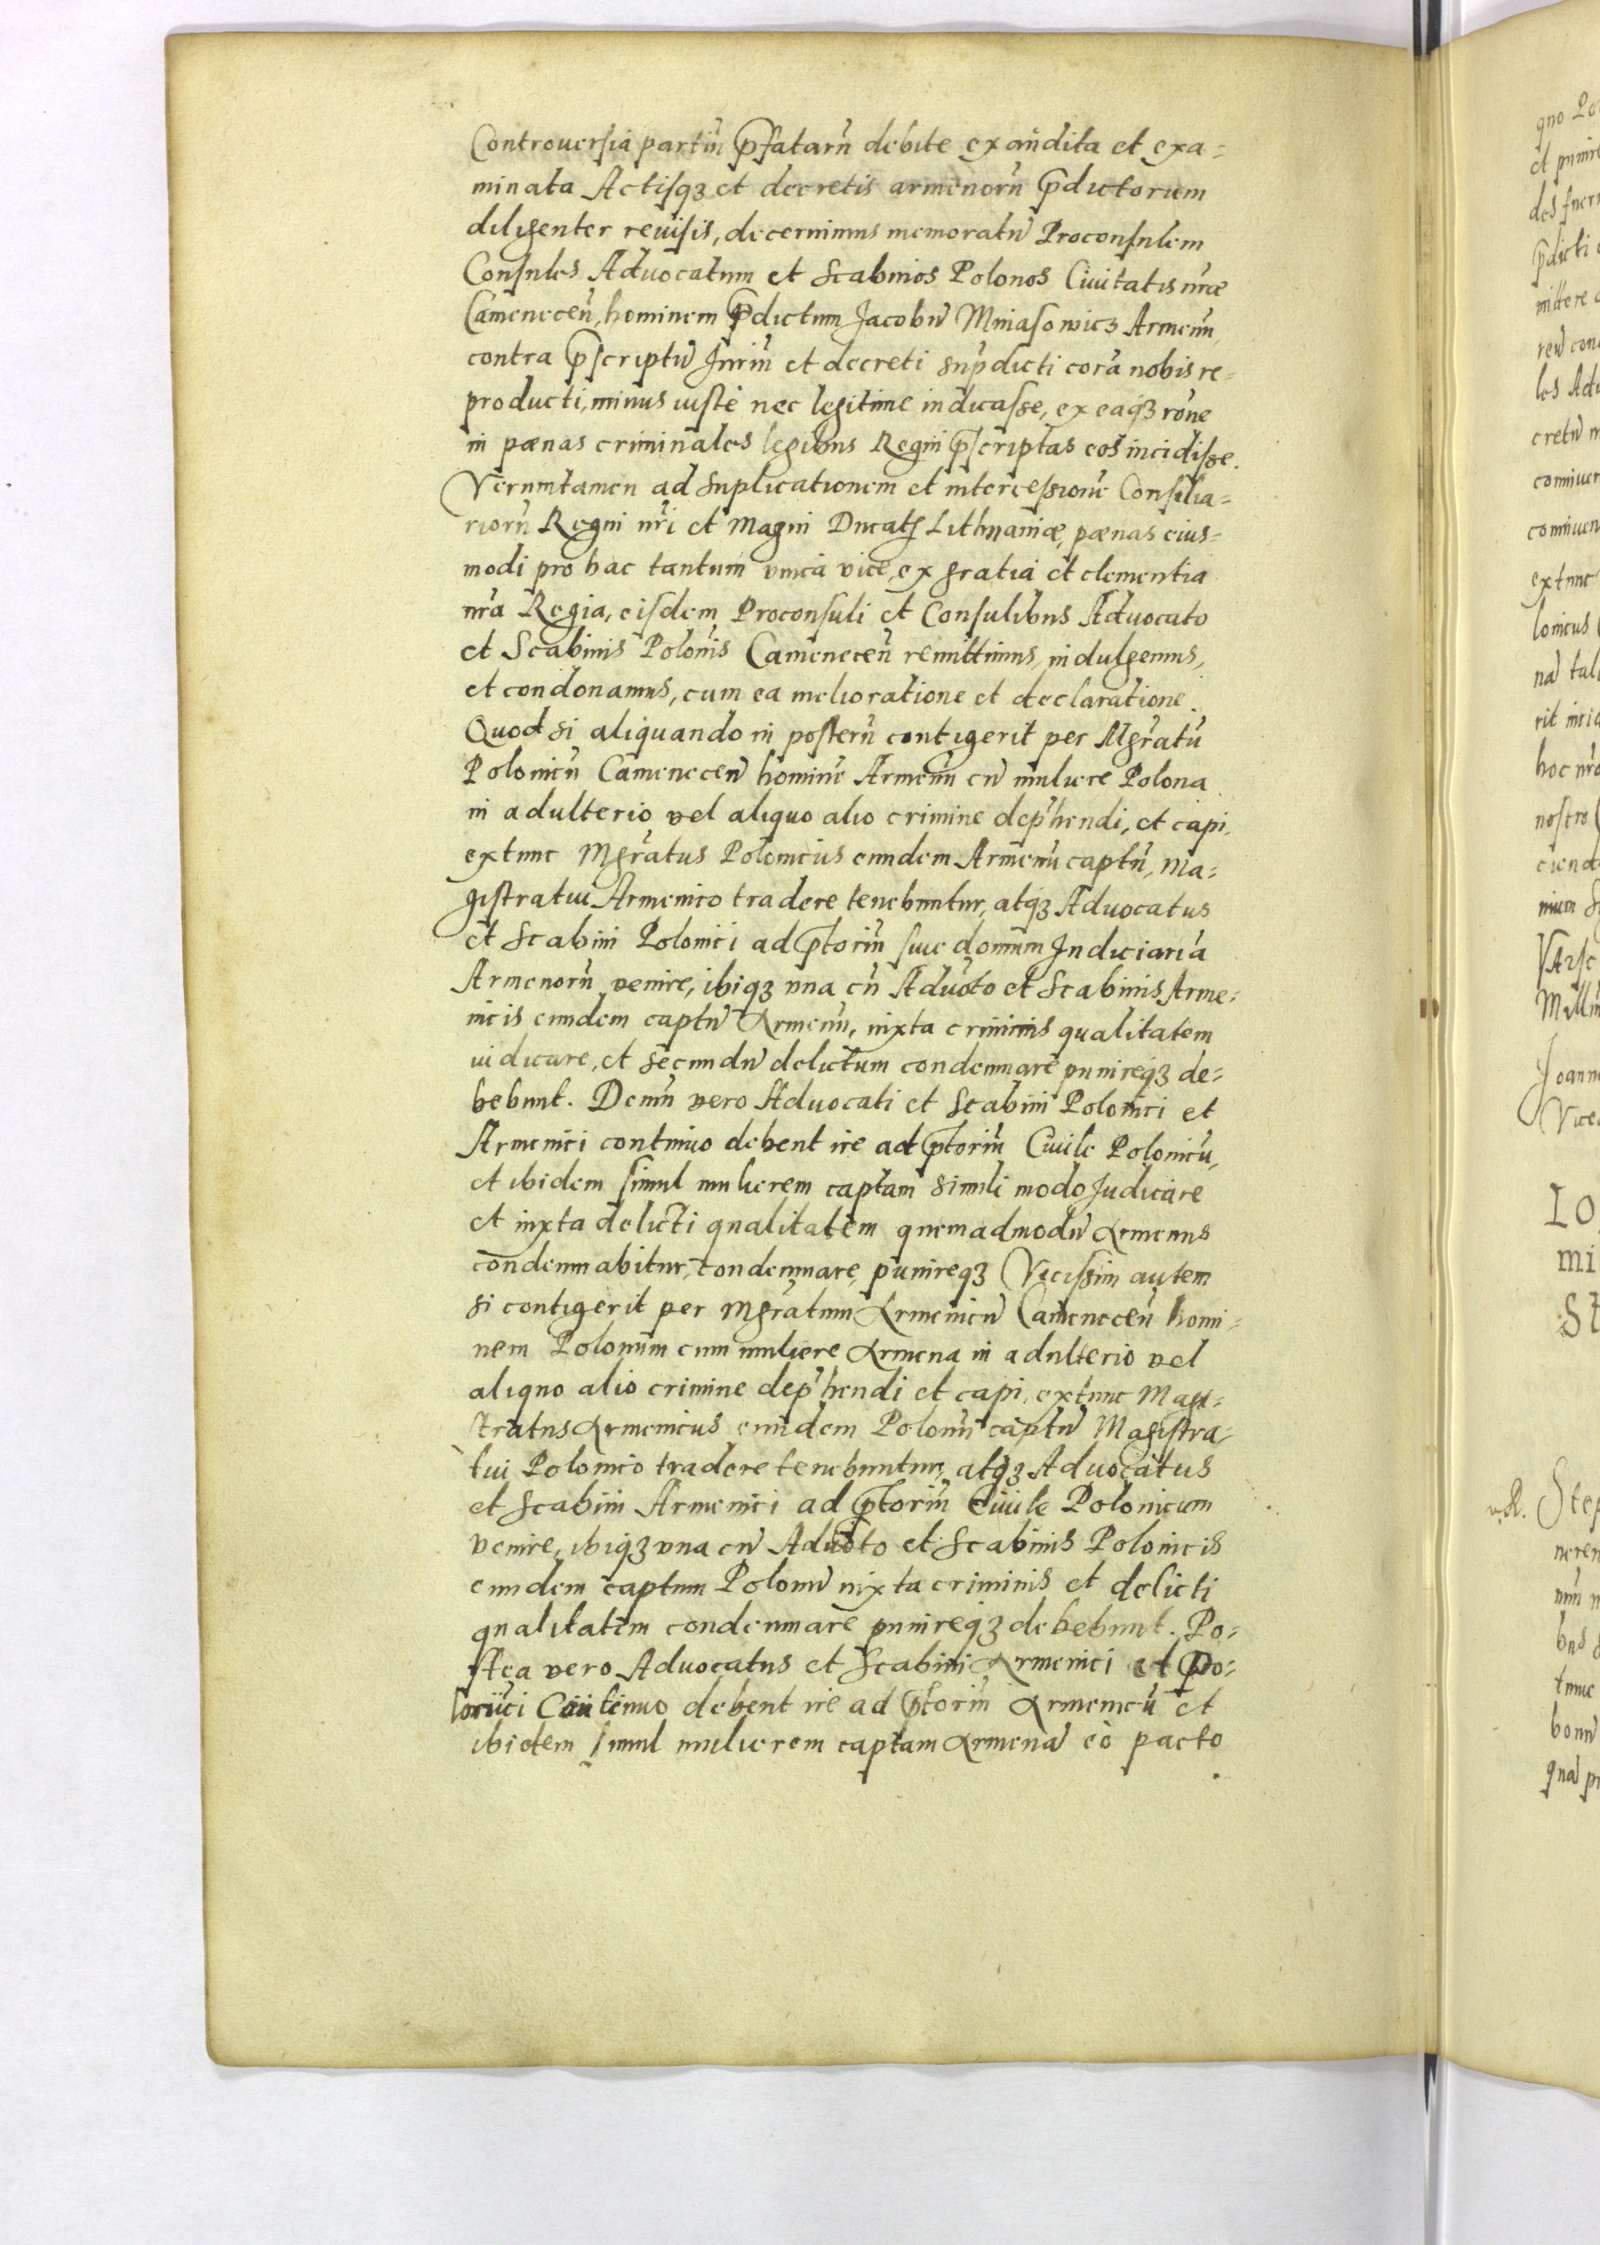 Controuersia partiũ p̃fatarũ debite exaũdita et exa=
minata Actisqꝫ et decretis armenorũ p̃dictorum
diligenter reuisis, decernimus memoratũ Proconsulem
Consules Aduocatum et Scabinos Polonos Ciuitatis nr̃æ
Camenecen̄, hominem p̃dictum Jacobũ Minasowicz Armenũ
contra p̃scriptũ Juriũ et decreti sup̃dicti corã nobis re=
producti, minus iustè nec legitime iudicasse, ex eaqꝫ rōne
in pœnas criminales legibus Regni p̃scriptas eos incidisse.
Verumtamen ad suplicationem et intercessionẽ Consilia=
riorũ Regni nr̃i et Magni Ducatꝰ Lithuaniæ, pœnas eius=
modi pro hac tantum vnica vice, ex gratia et clementia
nr̃a Regia, eisdem Proconsuli et Consulibus Aduocato
et Scabinis Polonis Camenecen̄ remittimus, indulgemus,
et condonamus, cum ea melioratione et declaratione.
Quod si aliquando in posterũ contigerit per Mgr̃atũ
Polonicũ Camenecen̄ hominẽ Armenũ cũ muliere Polona
in adulterio vel aliquo alio crimine dep̃hendi, et capi,
extunc Mgr̃atus Polonicus eundem Armenũ captũ, Ma=
gistratui Armenico tradere tenebuntur, atqꝫ Aduocatus
et Scabini Polonici ad p̃toriũ siue domum Judiciariã
Armenorũ venire, ibiqꝫ vna cũ Aduõto et Scabinis Arme=
nicis eundem captũ Armenũ, iuxta criminis qualitatem
iudicare, et secundũ delictum condemnare punireqꝫ de=
bebunt. Demũ vero Aduocati et Scabini Polonici et
Armenici continuo debent ire ad p̃toriũ Ciuile Polonicũ,
et ibidem simul mulierem captam simili modo Judicare
et iuxta delicti qualitatem quemadmodũ Armenus
condemnabitur, condemnare, punireqꝫ Vicissim autem
si contigerit per Mgr̃atum Armenicũ Camenecen̄ homi=
nem Polonum cum muliere Armena in adulterio vel
aliquo alio crimine dep̃hendi et capi, extunc Magi=
stratus Armenicus eundem Polonũ captũ Magistra=
tui Polonico tradere tenebuntur, atqꝫ Aduocatus
et Scabini Armenici ad p̃toriũ Ciuile Polonicum
venire, ibiqꝫ vna cũ Aduõto et Scabinis Polonicis
eundem captum Polonũ iuxta criminis et delicti
qualitatem condemnare punireqꝫ debebunt. Po=
stea vero Aduocatus et Scabini Armenici et Po=
lonici Continuo debent ire ad p̃toriũ Armenicũ et
ibidem simul mulierem captam Armenã eò pacto